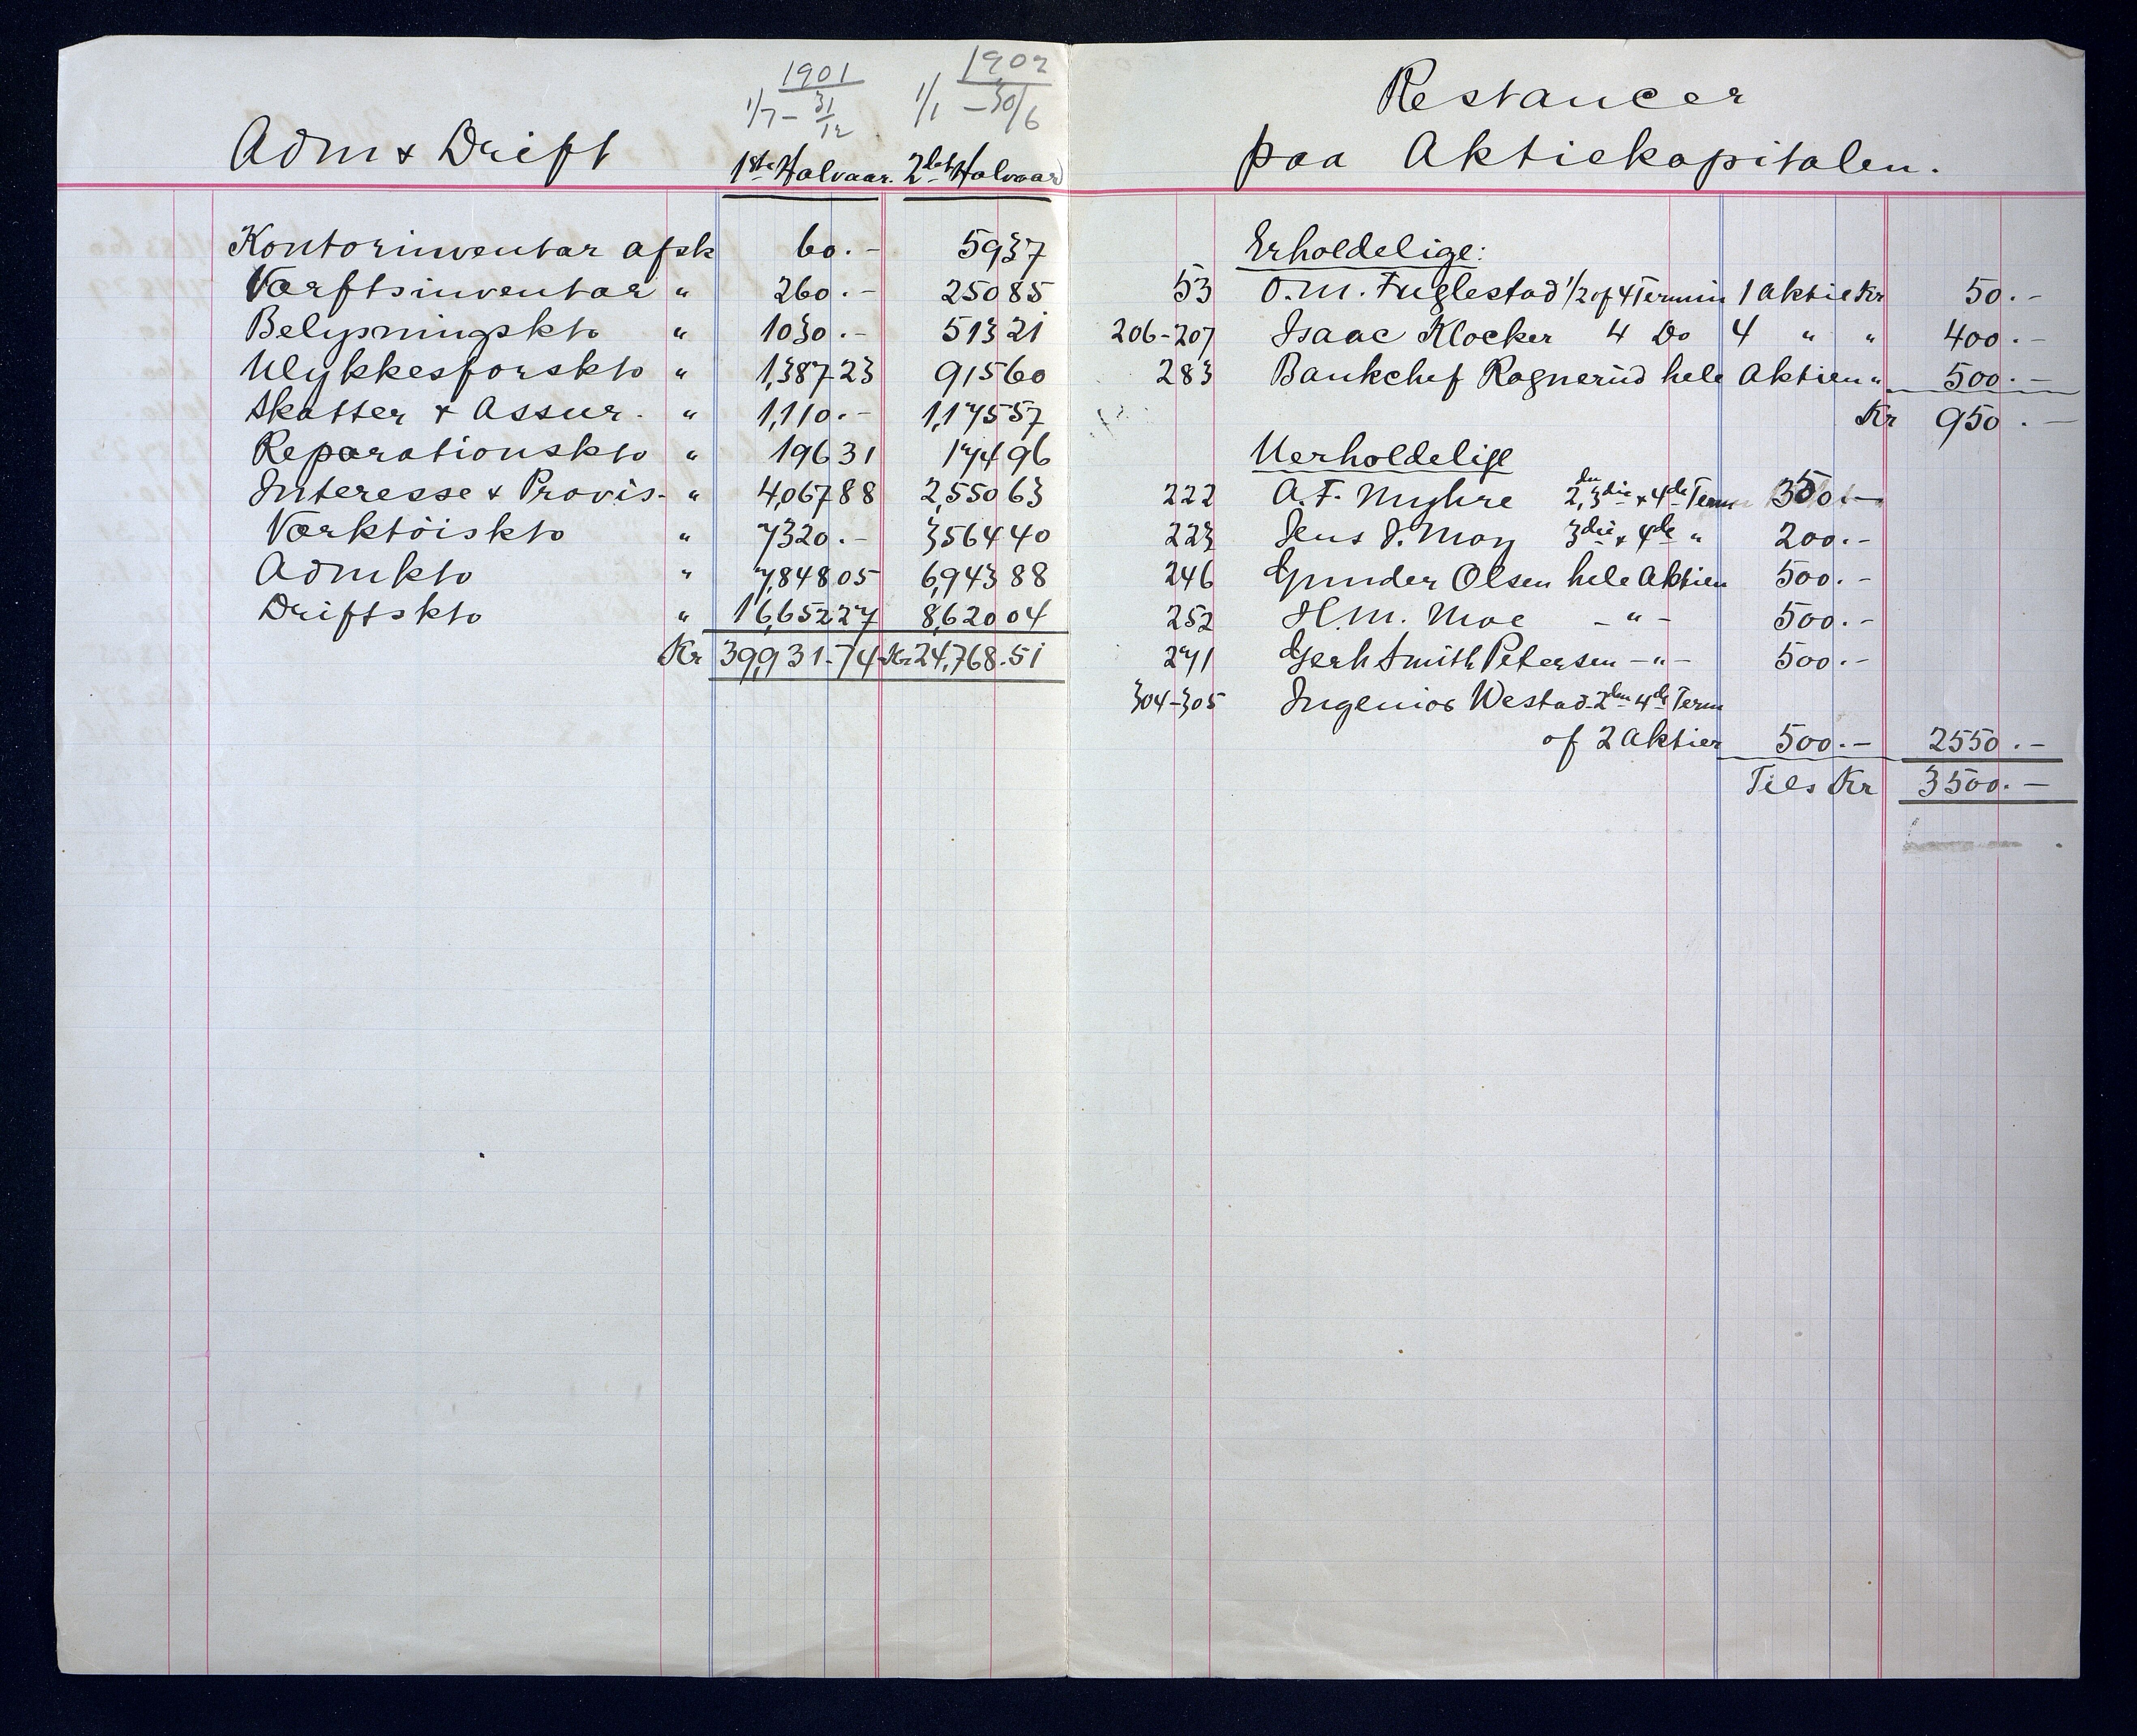 1901 1902
1/7 – 31/12 1/1 – 30/6
Adm & Drift 1ste Halvaar. 2det Halvaar
Kontorinventar afsk 60.– 59 37
Værftsinventar " 260.– 250 85
Belysningskto " 1030.– 513 21
Ulykkesforskto " 1,387 23 915 60
Skatter & Assur. " 1,110.– 1,175 57
Reparationskto " 196 31 174 96
Interesse & Provis. " 4,067 88 2,550 63
Værktöiskto " 7320.– 3564 40
Admkto " 7,848.05 6,943 88
Driftskto " 16,652 27 8,620 04
Kr 39,931.74 Kr 24,768.51
Restancer
paa Aktiekapitalen.
Erholdelige:
53 O.M. Fuglestad 1/2 af 4 Termin 1 Aktie Kr 50.–
206-207 Isaac Klocker 4 Do 4 " " 400.–
283 Bankchef Ragnerud hele Aktien " 500.–
Kr 950.–
Uerholdelige
222 A.F. Myhre 2den, 3die & 4de Term 350.–
223 Jens J. May 3die & 4de " 200.–
246 Gunder Olsen hele Aktien 500.–
252 H.M. Moe – " – 500.–
271 Gerh Smith Petersen – " – 500.–
304-305 Ingeniør Westad 2den 4de Term
af 2 Aktier 500.– 2550.–
Tils Kr 3500.–